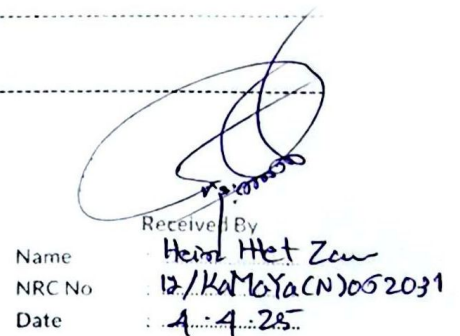 Received By
Name Hein Htet Zaw
NRC No : 12/KaMaYa(N)052031
Date : 4.4.25